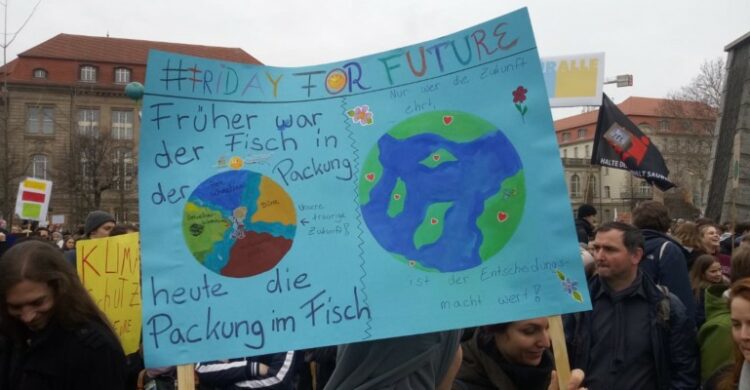 #FRIDAY FOR FUTURE
Früher war
der Fisch in
der Packung
heute die
Packung im Fisch
Dürre
Unsere
traurige
Zukunft!
Nur wer die Zukunft
ehrt,
ist der Entscheidungs-
macht wert!
ALLE
HALTE
KLIMA
schutz